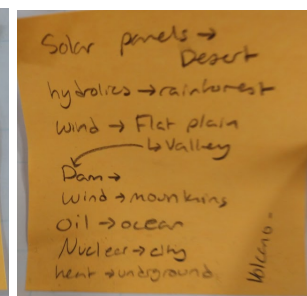 Solar panels →
Desert
hydrolics → rainforest
wind → Flat plain
↳ Valley
Dam →
wind → mountains
Oil → ocean
Nuclear → city
heat → underground.
Volcano -